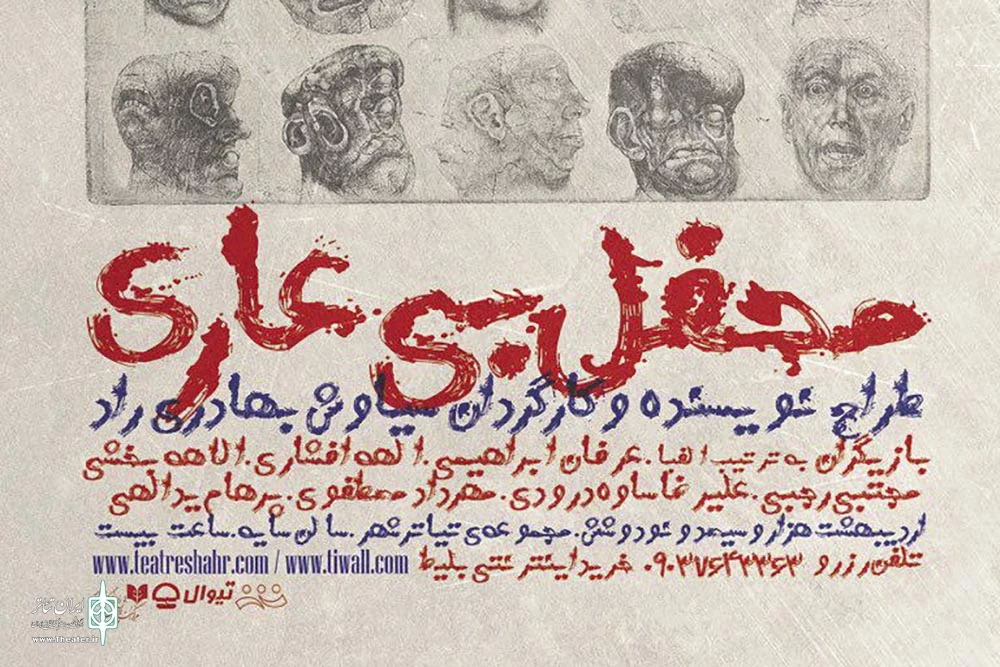 محفل بی عاری
طراح نویسنده و کارگردان سیاوش بهادری راد
بازیگران به ترتیب الفبا. عرفان ابراهیمی. الهه افشاری. الاهه بخشی
مجتبی رجبی. علیرضا ساوه درودی. مهرداد مصطفوی. پرهام یدالهی
اردیبهشت هزار و سیصد و نود و شش. مجموعه ی تیاتر شهر. سالن سایه. ساعت بیست
تلفن رزرو ۰۹۰۳۷۶۴۳۳۶۳ خرید اینترنتی بلیط www.teatreshahr.com / www.tiwall.com
تیوال
ایران تئاتر
www.theater.ir